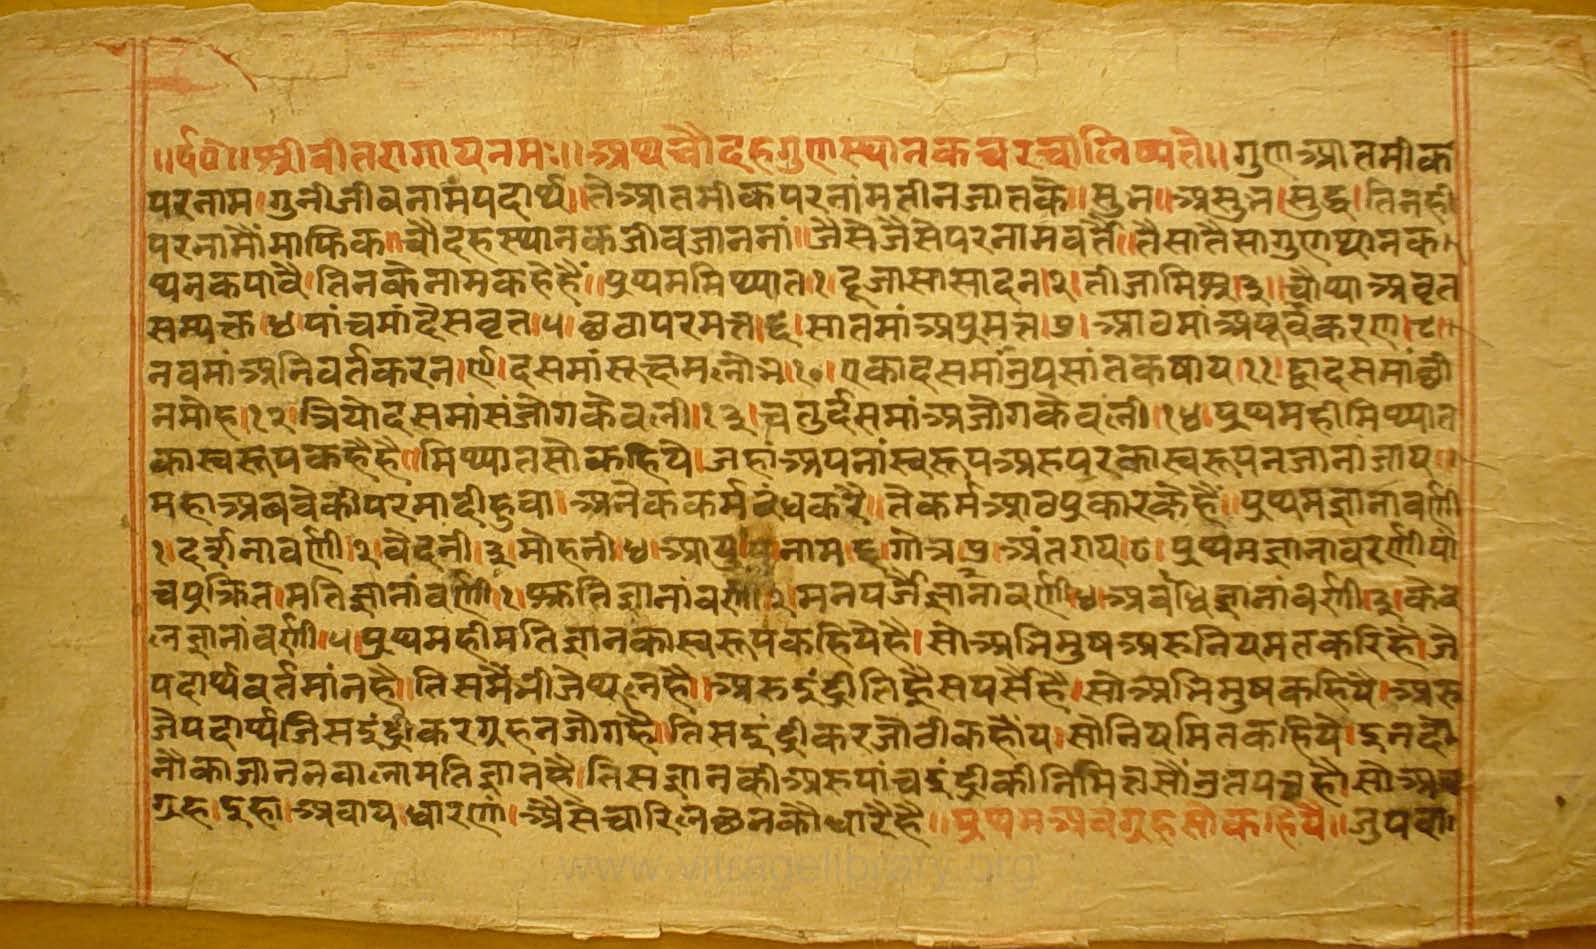 ॥र्द०॥श्रीवीतरागायनमः॥अथचौदहगुणस्थानकचरचालिष्यते॥गुणआतमीक
परनाम।गुनीजीवनामंपदार्थ॥तेआतमीकपरनांमतीनजातकै॥सुभ॥असुभ।सुद्ध।तिनही
परनामौंमाफिक॥चौदहस्थानकजीवजाननां॥जैसेजैसेपरनामवर्तै॥तैसातैसागुणथानक॥
थनकपावै।तिनकेनामकहेहैं॥प्रथममिथ्यात१।दूजासासादन।२।तीजामिश्र।३।चौथाअवृत
सम्यक्त।४।पांचमांदेसवृत।५।छठापरमत्त।६।सातमांअप्रमत्त।७।आठमांअपूर्वकरण।८।
नवमांअनिवर्तकरन।९।दसमांसूक्ष्मलोभ।१०।एकादसमांउपसांतकषाय।११।द्वादसमांछी
नमोह।१२।त्रियोदसमांसंजोगकेवली।१३।चतुर्दसमांअजोगकेवली।१४।प्रथमहीमिथ्यात
कास्वरूपकहैहै॥मिथ्यातसोकहिये।जहांअपनांस्वरूपअरुपरकास्वरूपनजानांजाय॥
महाअबवेकीपरमादीहुवा।अनेककर्मबंधकरै॥तेकर्मआठप्रकारकेहैं॥प्रथमज्ञानावर्णी
१।दर्शनावर्णी।२।वेदनी।३।मोहनी।४।आयु।५।नाम।६।गोत्र।७।अंतराय।८।प्रथमज्ञानावरर्णीपां
चप्रक्रित।मतिज्ञानांवर्णी।१।श्रुतिज्ञानांवर्णी।२।मनपर्जैज्ञानांवर्णी।४।अवधिज्ञानांवर्णी।३।केव
लज्ञानांवर्णी।५।प्रथमहीमतिज्ञानकास्वरूपकहियैहै।सोअभिमुषअरुनियमतकरिहै।जे
पदार्थवर्तमांनहै।तिसमैंभीजेथूलहै।अरुइंद्रीतिहैसपर्सैहै।सोअभिमुषकहियै।अरु
जेपदार्थजिसइंद्रीकरग्रहनजोगहै।तिसइंद्रीकरजोठीकहोय।सोनियमितकहियै।इनदो
नौकाजाननवालामतिज्ञानहै।तिसज्ञानकीअरुपांचइंद्रीकीनिमितसौंउतपन्नहै।सोअव
ग्रह।इहा।अवाय।धारणा।औसेच्चारिलछनकौधारैहै॥प्रथमअवग्रहसोकहियै॥जुपवा
www.vitragelibrary.org